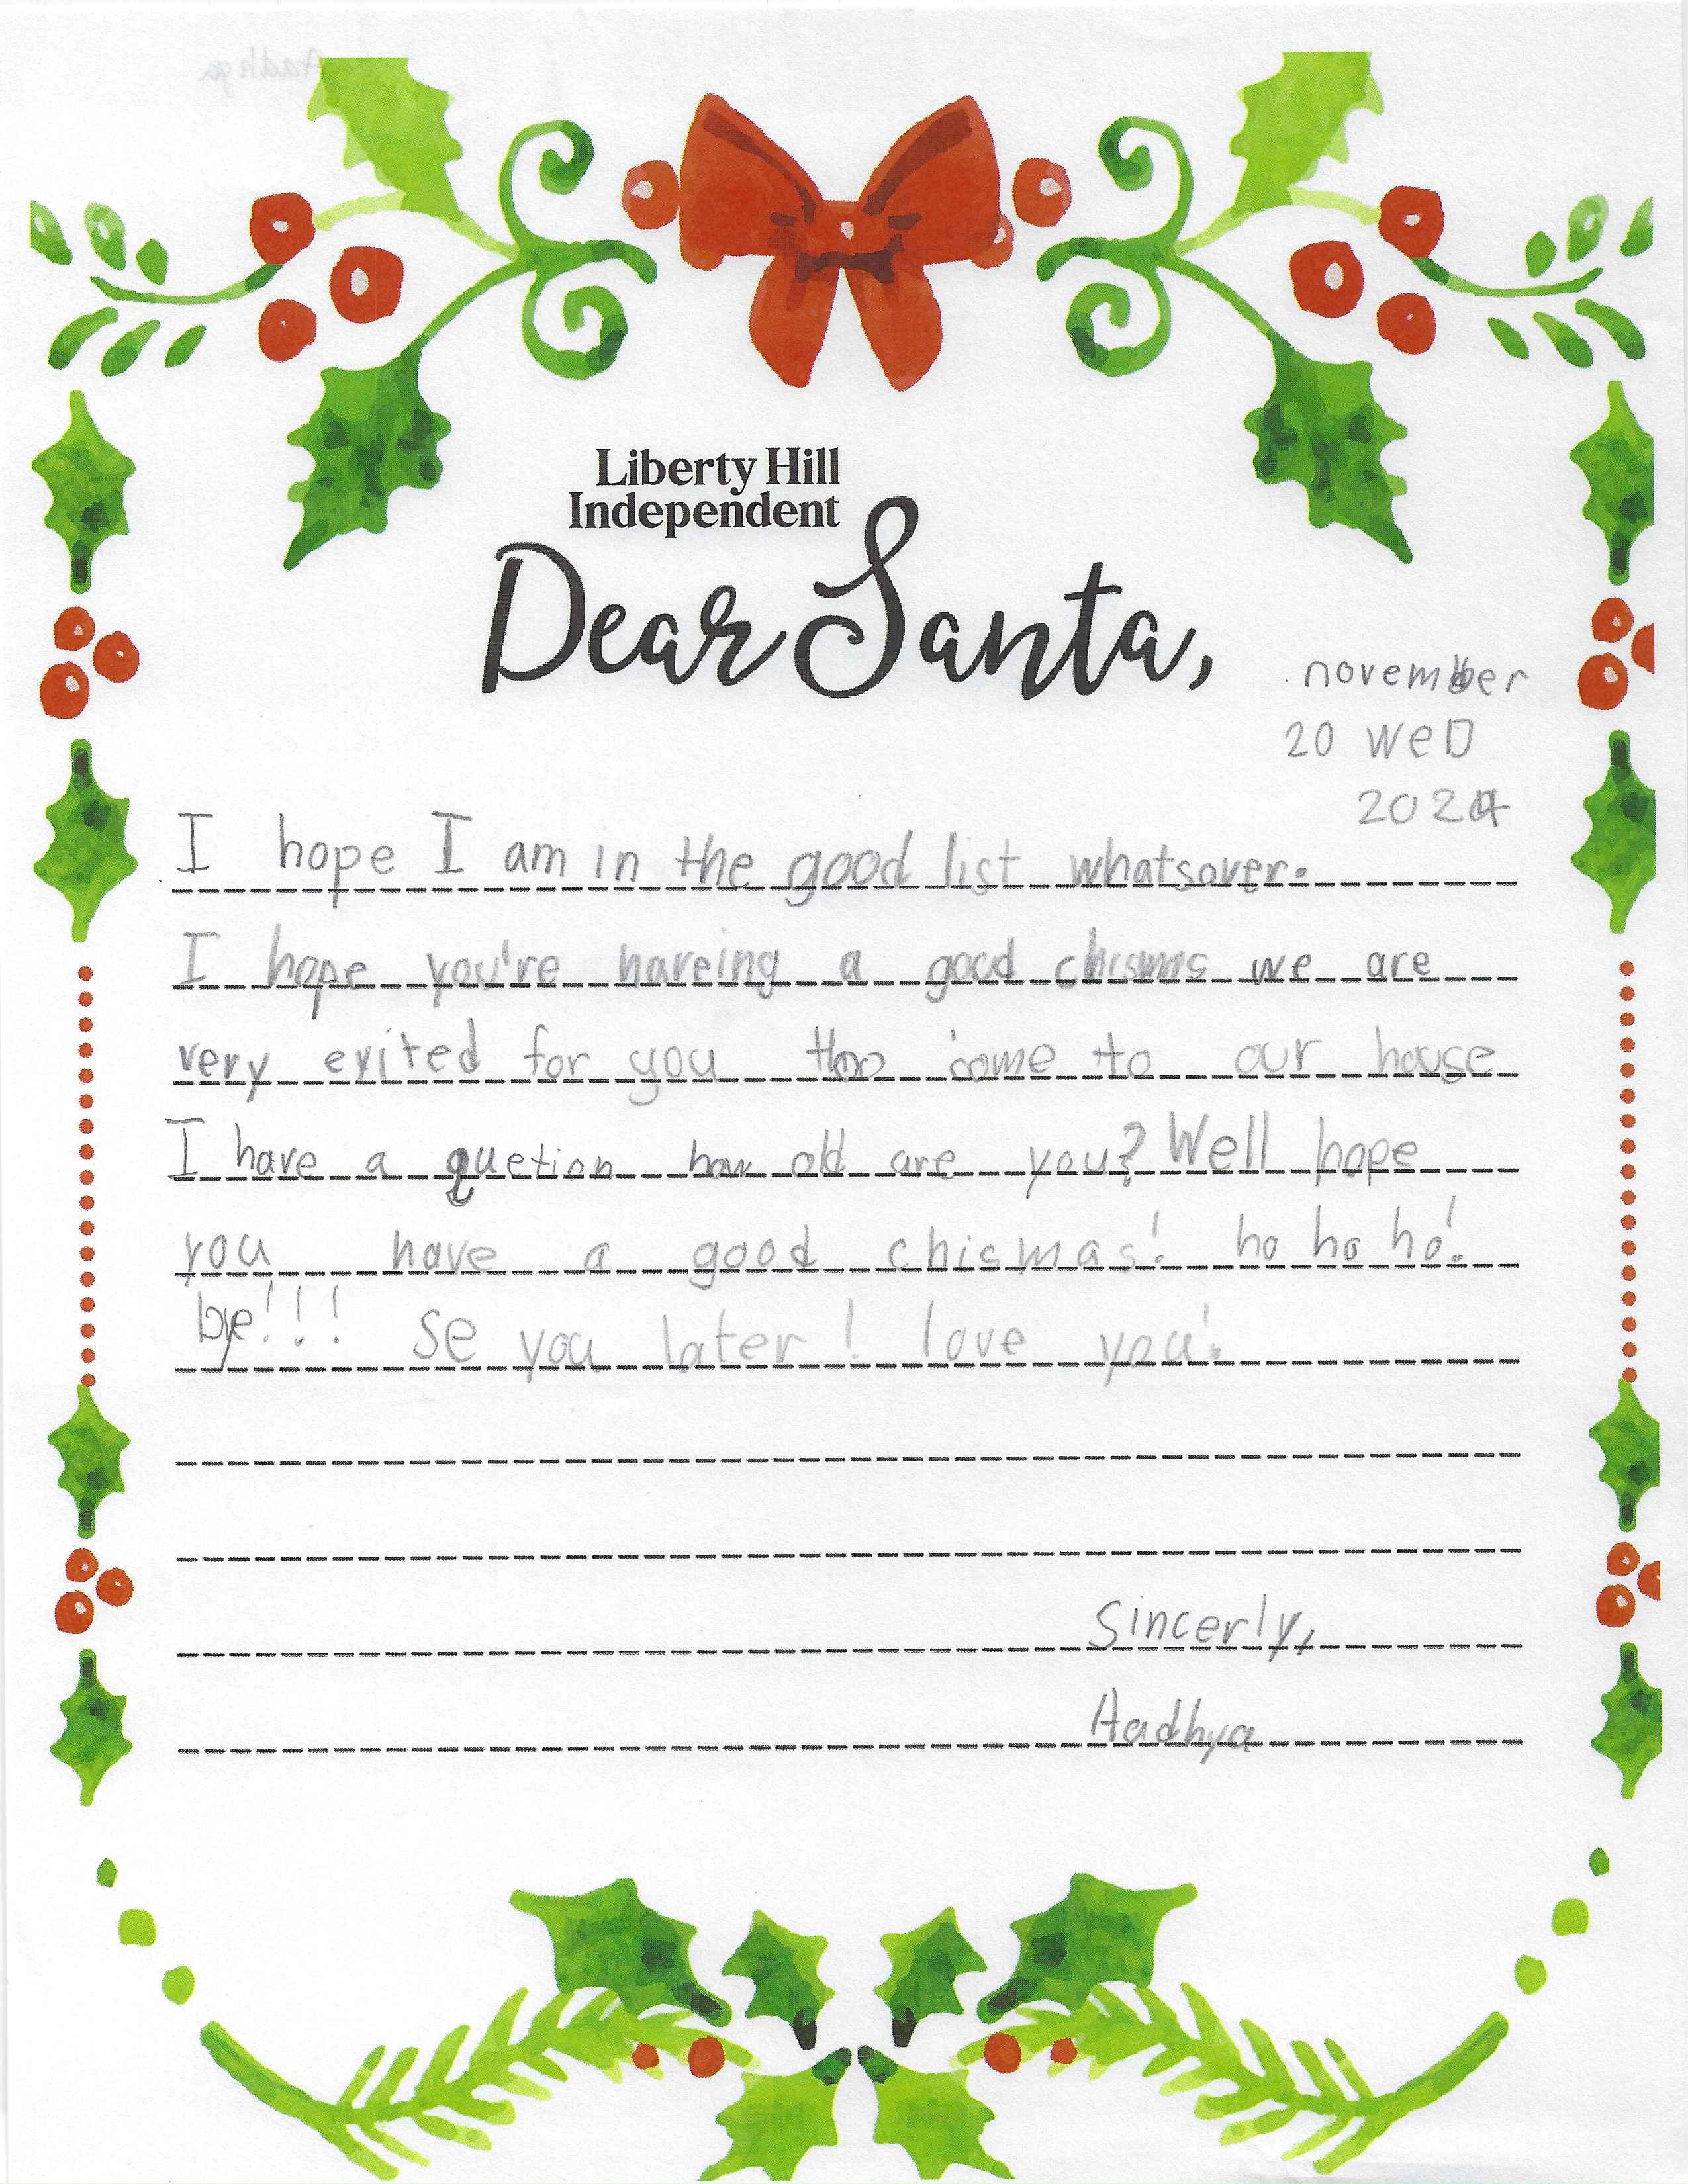 Liberty Hill
Independent
Dear Santa,
november
20 WeD
2024
I hope I am in the good list whatsover.
I hope you're hareing a good chismas we are
very exited for you too come to our house
I have a quetion how old are you? Well hope
you have a good chismas! ho ho ho!
bye!!! se you later! love you!
Sincerly,
Aadhya